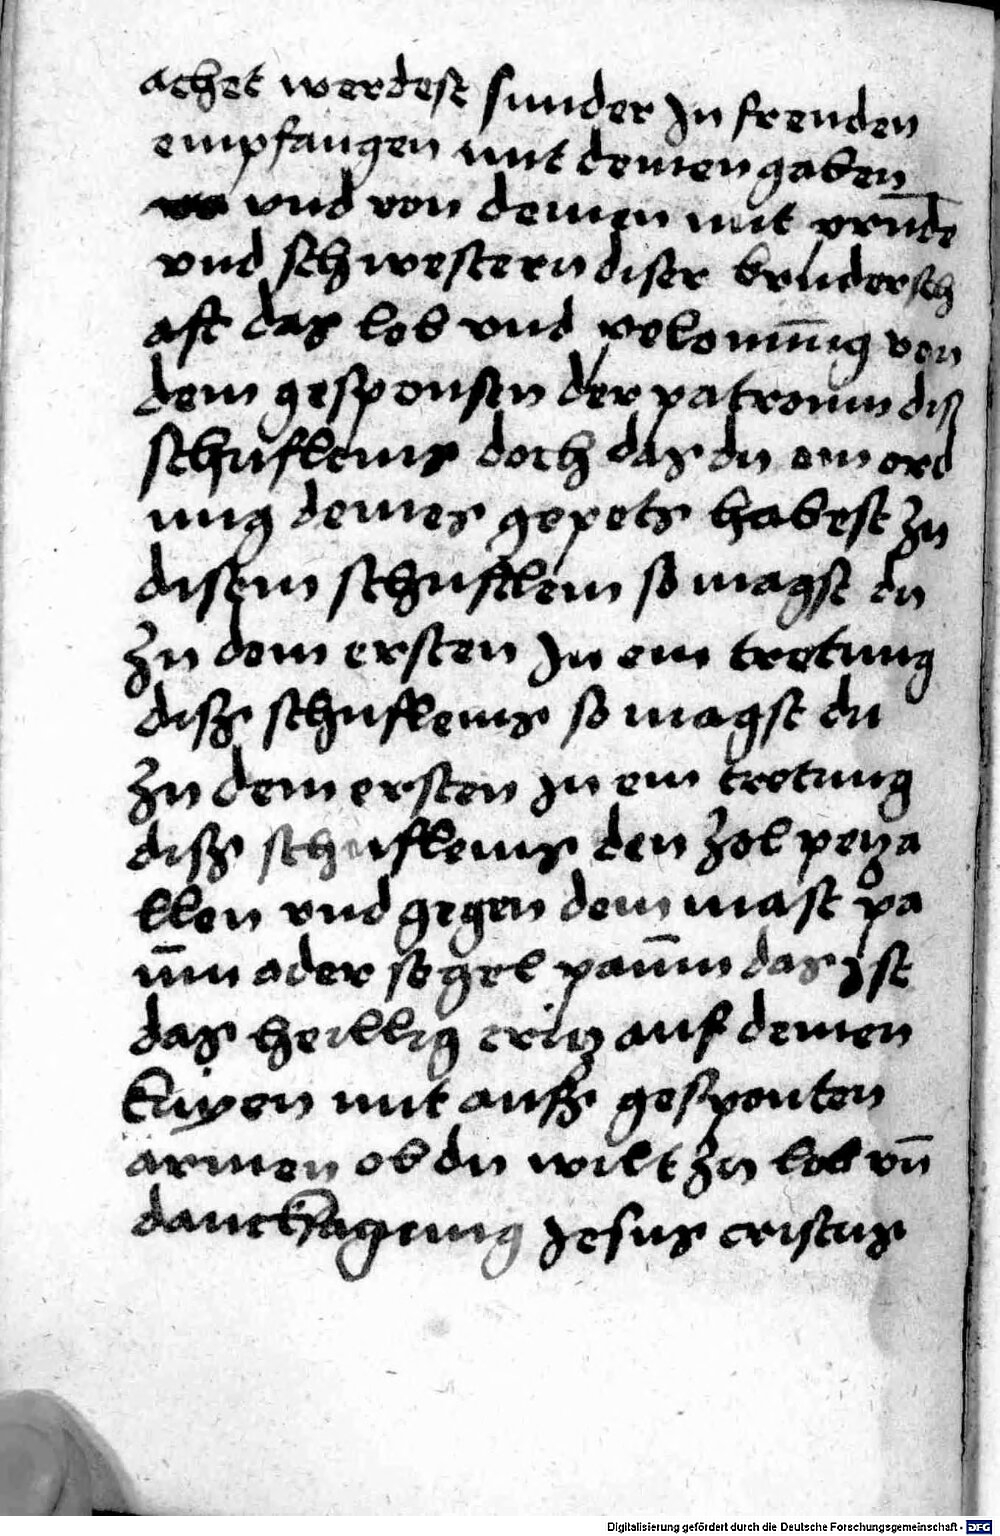 achet werdest sunder Jn freuden
empfangen mit deinen gaben
vnd von deinen mit prude
vnd schwestern diser brudersch
aft das lob vnd pelonūg von
dem gesponsen der patronin diß
schufleins doch das du ein ord
nug deines gepets habest zu
disem schuflein so magst du
zu dem ersten Jn ein tretung
diß schufleins so magst du
zu dem ersten Jn ein tretung
diß schufleins den zol peza
llen vnd gegen dem mast pa
um ader segel paum das Jst
das heillig critz auf deinen
knyen mit auß gesponten
armen ob du wilt zu lob vn̄
dancksagung Jesus cristus
Digitalisierung gefördert durch die Deutsche Forschungsgemeinschaft - DFG